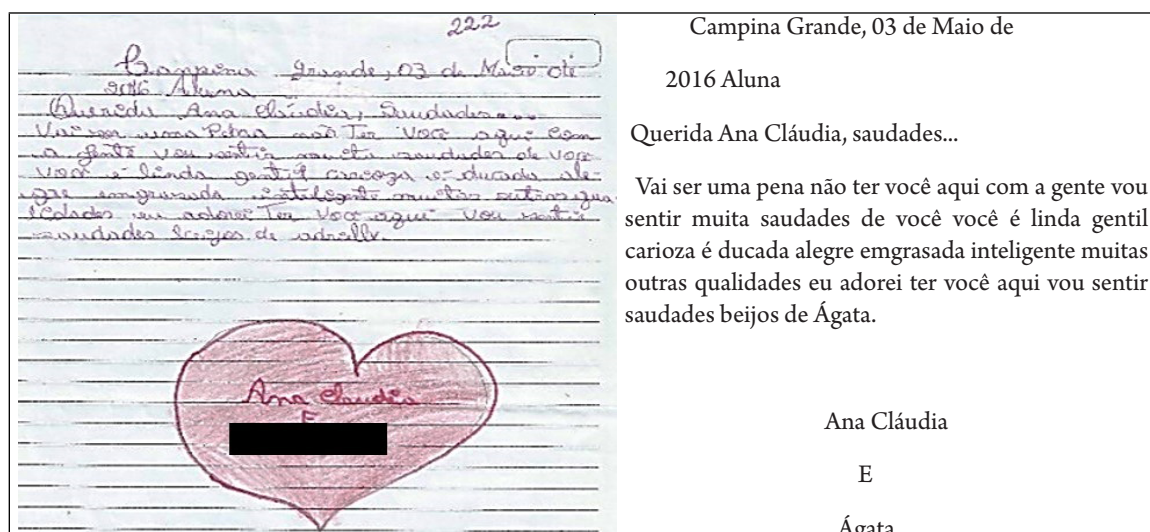 222
Campina Grande, 03 de Maio de
2016 Aluna
Querida Ana Cláudia, Saudades...
Vai ser uma Pena não Ter Você aqui com
a gente vou sentir muita saudades de você
você é linda gentil carioza é ducada ale-
gre emgrasada inteligente muitas outras qua
lidades eu adorei Ter Você aqui vou sentir
saudades beijos de
Ana Claudia
E
Campina Grande, 03 de Maio de
2016 Aluna
Querida Ana Cláudia, saudades...
Vai ser uma pena não ter você aqui com a gente vou
sentir muita saudades de você você é linda gentil
carioza é ducada alegre emgrasada inteligente muitas
outras qualidades eu adorei ter você aqui vou sentir
saudades beijos de Ágata.
Ana Cláudia
E
Ágata